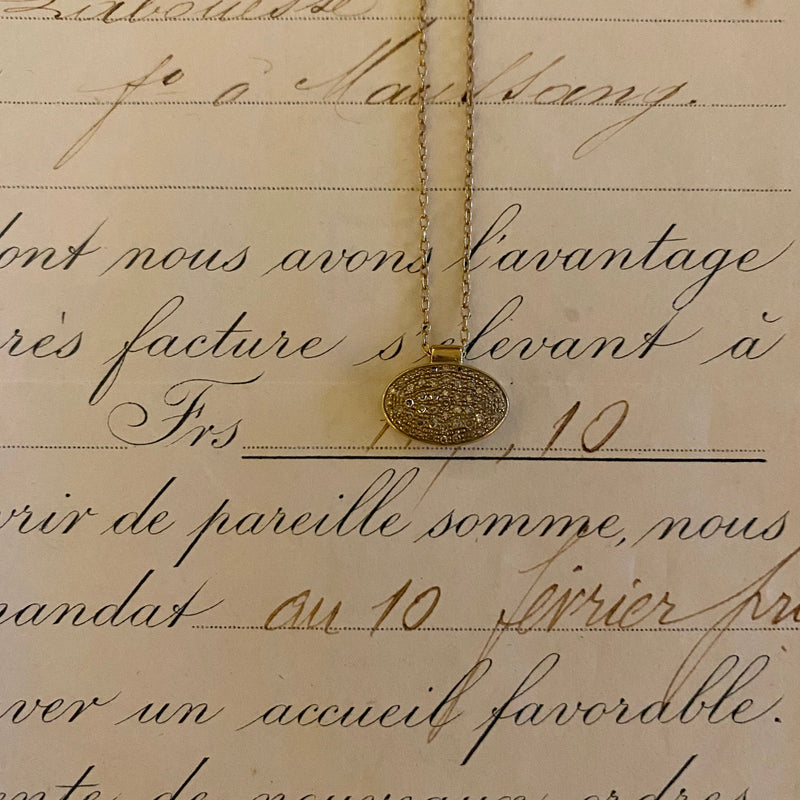 fº à
dont nous avons l'avantage
près facture s'élevant à
Frs , 10
vrir de pareille somme, nous
mandat au 10 février pro
ver un accueil favorable.
ente de nouveaux ordres